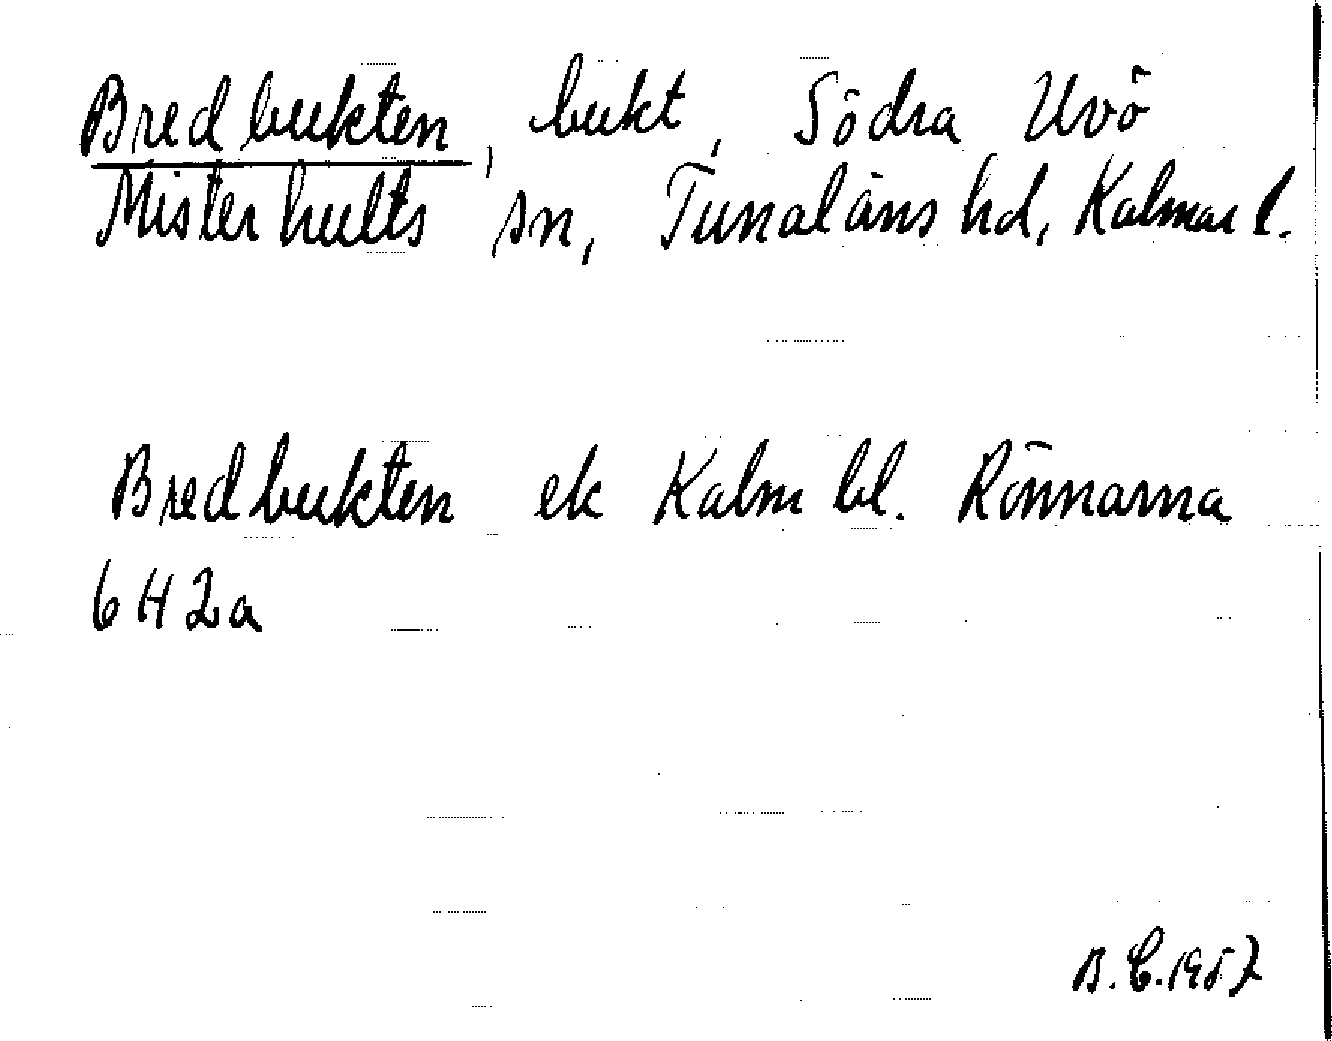 Bredbukten, bukt, Södra Uvö
Misterhults sn, Tunaläns hd, Kalmar l.
Bredbukten ek Kalm bl. Rönnarna
6H2a
B.C.1957